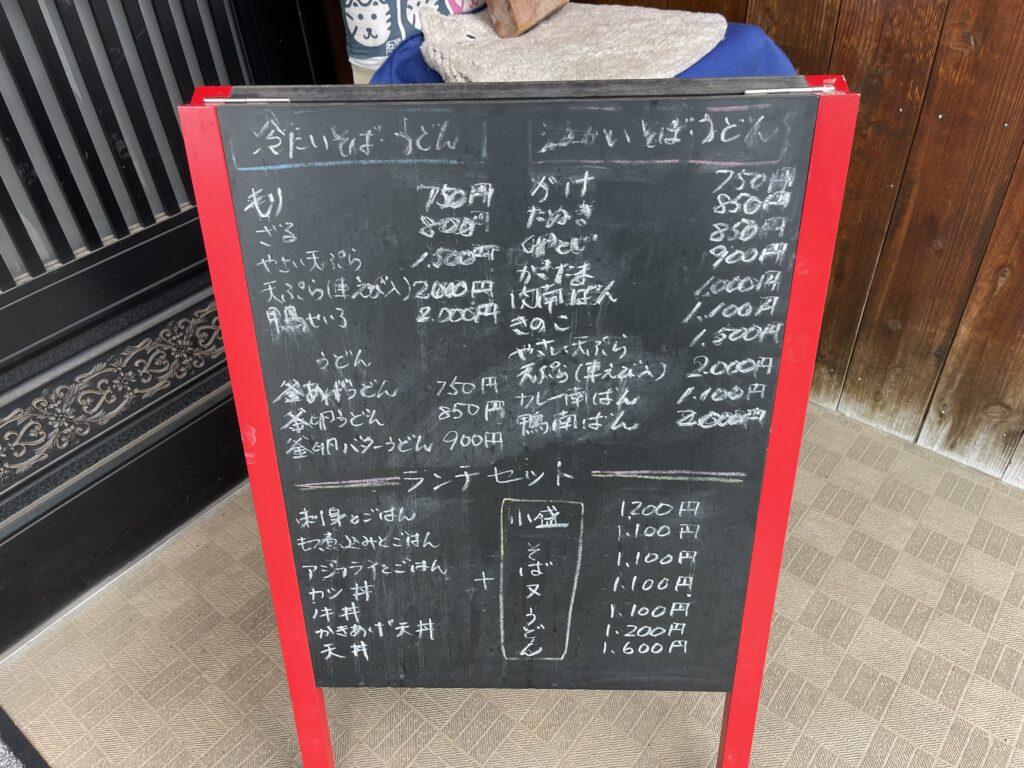 冷たいそば・うどん
もり 750円
ざる 800円
やさい天ぷら 1.500円
天ぷら(車えび入) 2000円
鴨せいろ 2.000円
うどん
釜あげうどん 750円
釜卵うどん 850円
釜卵バターうどん 900円
温かいそば・うどん
かけ 750円
たぬき 850円
850円
900円
1.000円
きのこ 1.100円
やさい天ぷら 1.500円
天ぷら(車えび入) 2.000円
カレー南ばん 1.100円
鴨南ばん 2.000円
ランチセット
刺身とごはん 1200円
もつ煮込みとごはん 1.100円
アジフライとごはん 1.100円
カツ丼 1.100円
丼 1.100円
かきあげ天丼 1.200円
天丼 1.600円
+
小盛
そば又うどん